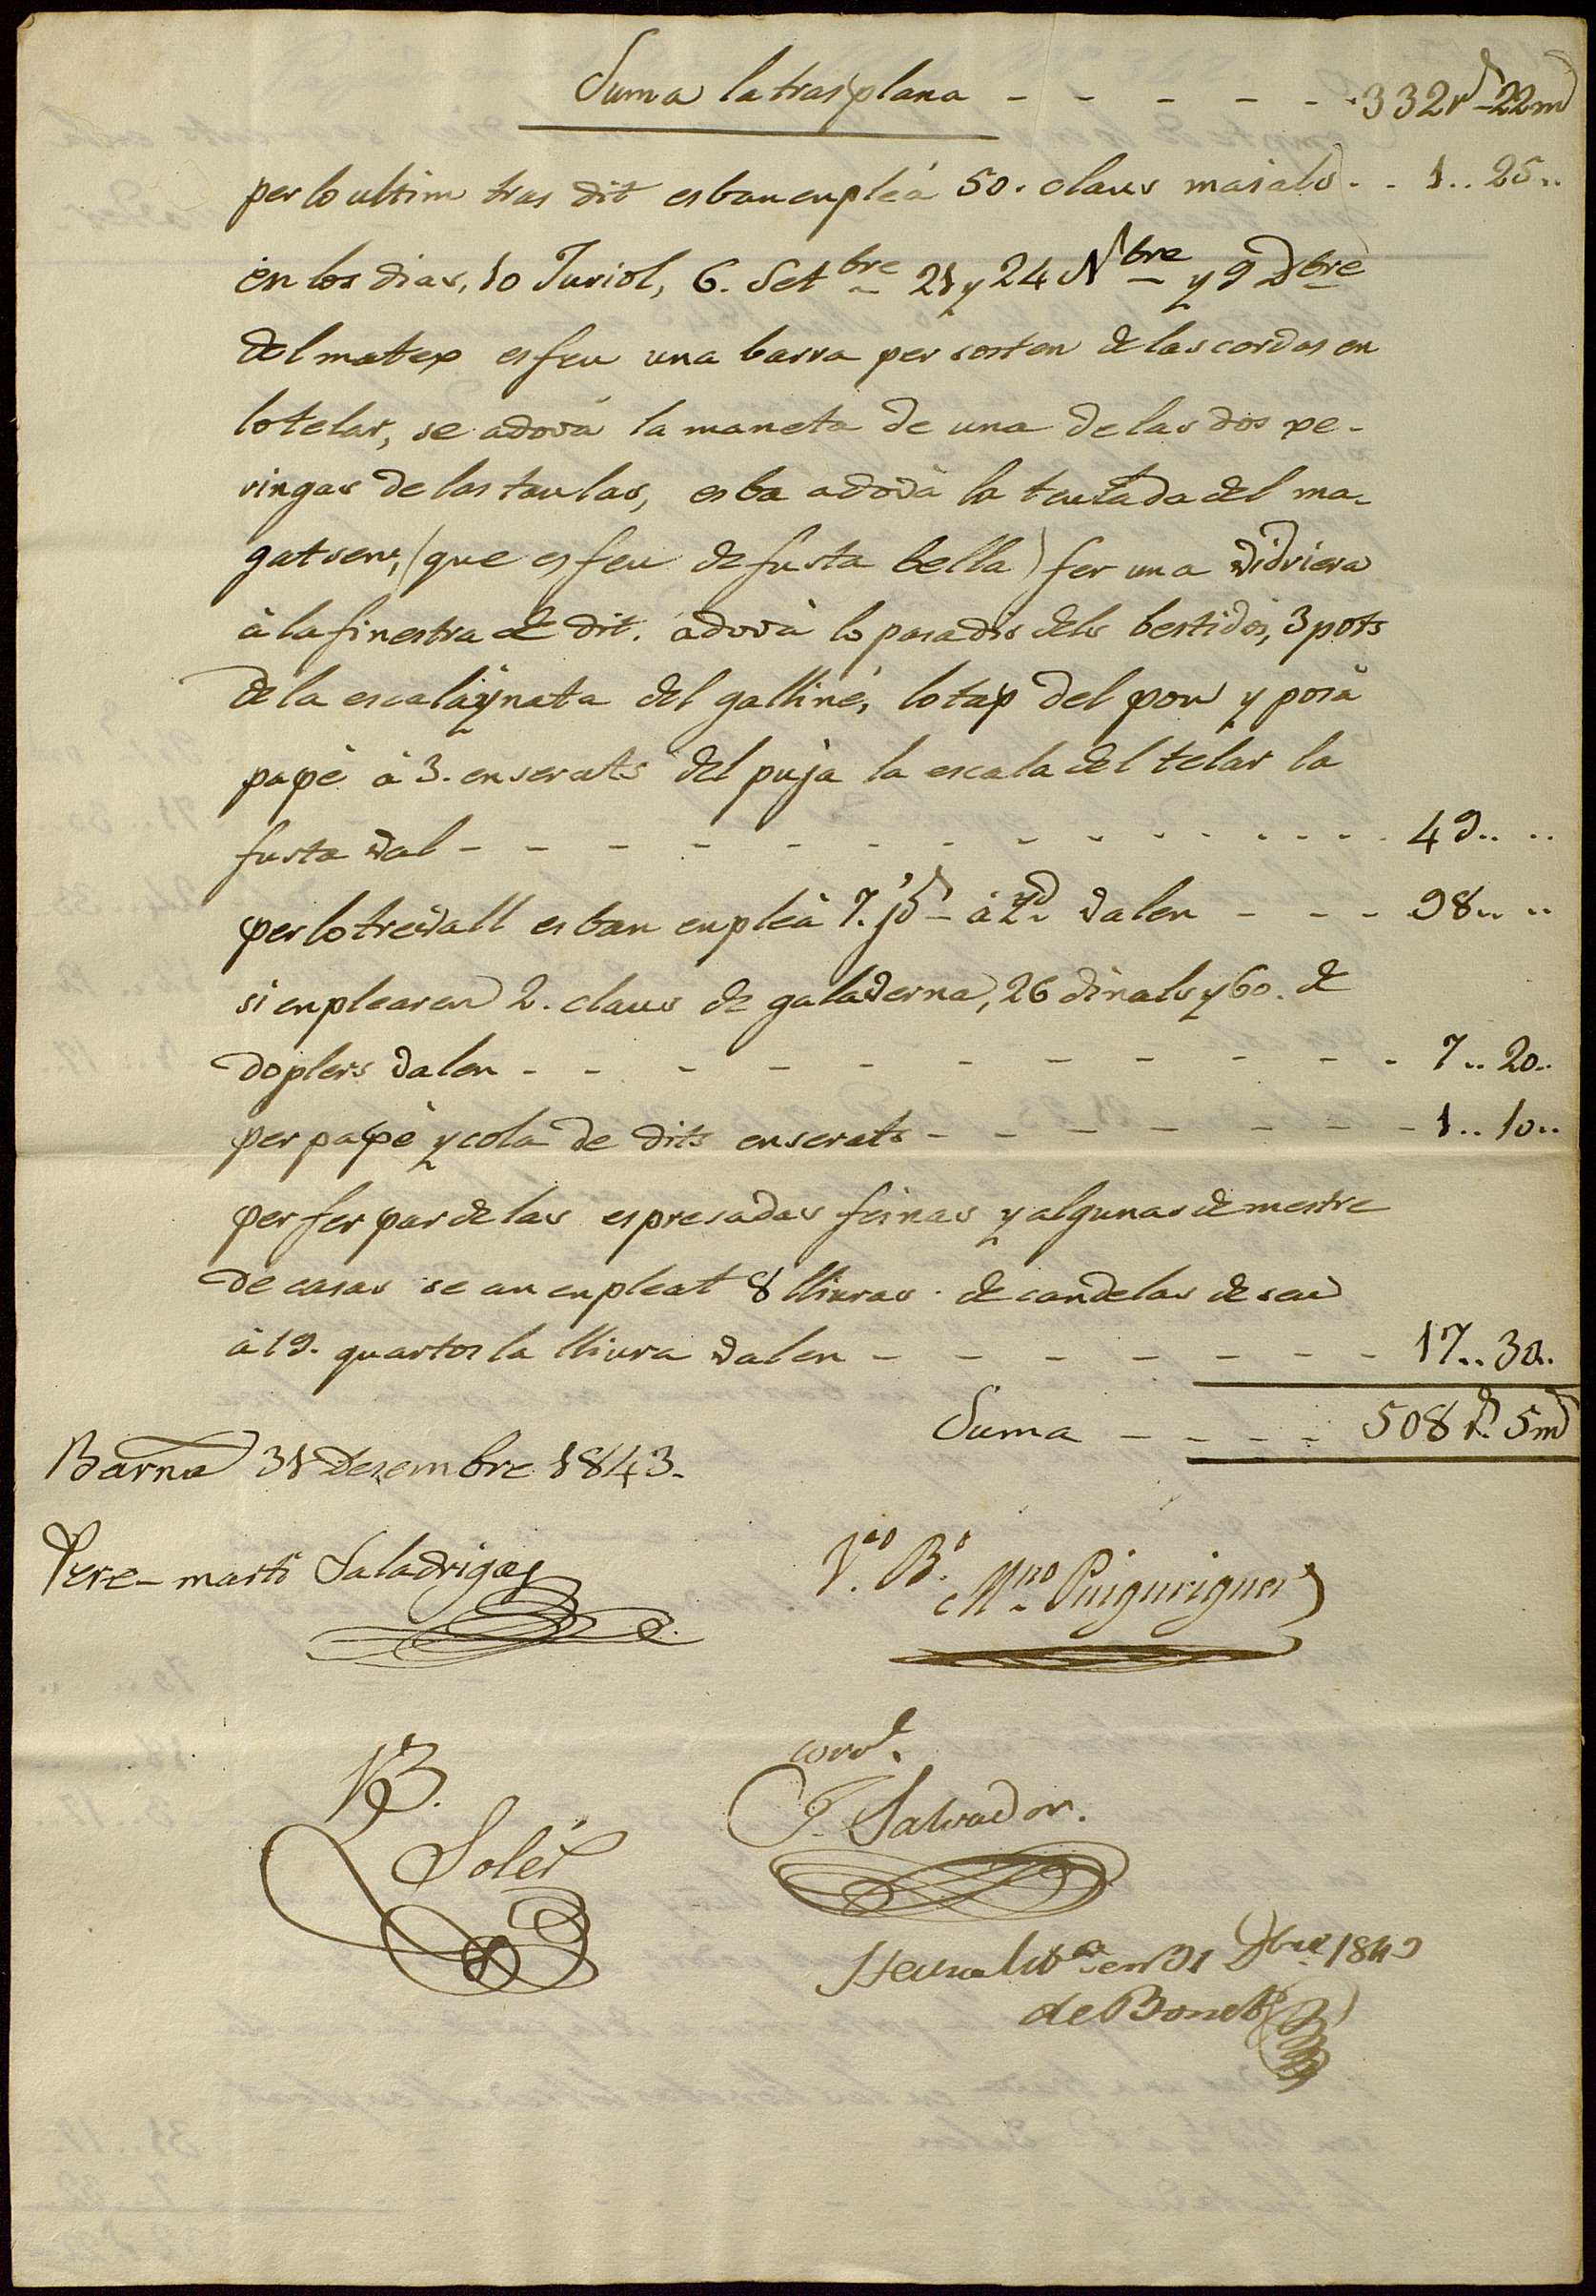 Suma la trasplana - - - - - 332 r.s 22 m.s
per lo ultim tras dit es ban enpleá 50. claus maials - - 1.. 25..
en los dias, 10 Juriol, 6. Setbre 21 y 24 Nbre y 9 Dbre
del matex es feu una barra per sosten de las cordas en
lo telar, se adová la maneta de una de las dos xe-
ringas de las taulas, es ba adová la teulada del ma-
gatsem, (que es feu de fusta bella) fer una vidriera
á la finestra de dit. adová lo pasadis dels bestidós, 3 pots
de la escalaynata del galliné, lo tap del pou y posá
papé á 3. enserats del pujá la escala del telár la
fusta val - - - - - - - - - - - - 49.. ..
per lo trevall es ban enpleá 7. jls á 14 valen - - - 98.. ..
si enplearen 2. claus de galaderna, 26 dinals y 60. de
doplers valen - - - - - - - - - - - 7.. 20..
per papé y cola de dits enserats - - - - - - - 1.. 10..
per fer par de las espresadas feinas y algunas de mestre
de casas se an enpleat 8 lliuras de candelas de seu
á 19. quartos la lliura valen - - - - - - - 17.. 30..
Suma - - - - 508 r.s 5 m.s
Barna 31 Desembre 1843.
Pere-martí Saladrigas
V.o B.o
Mno Puigurigner
VoB.
Soler
J. Salvador.
en 31 Dbre 1843
de Bonet